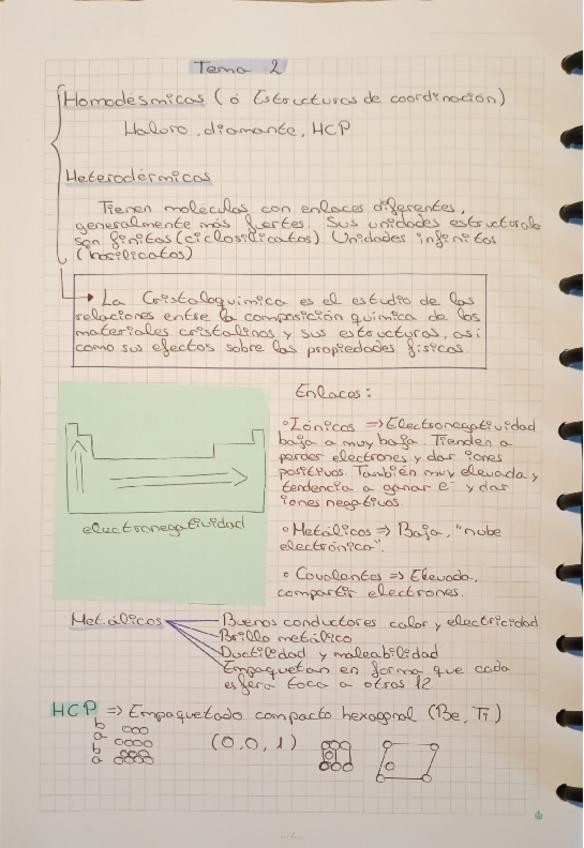 Tema 2
Homodésmicas (ó Estructuras de coordinación)
Haluro, diamante, HCP
Heterodérmicas
Tienen moléculas con enlaces diferentes,
generalmente más fuertes. Sus unidades estructurals
son finitas (ciclosilicatos). Unidades infinitas
(Inosilicatos)
La Cristaloquímica es el estudio de las
relaciones entre la composición química de los
materiales cristalinos y sus estructuras, así
como sus efectos sobre las propiedades físicas
Enlaces:
Iónicos => Electronegatividad
baja a muy baja. Tienden a
perder electrones y dar iones
positivos. También muy elevada y
tendencia a ganar e- y dar
iones negativos.
electronegatividad
Metálicos => Baja, "nube
electrónica".
Covalentes => Elevada,
compartir electrones.
Metálicos
Buenos conductores calor y electricidad
Brillo metálico
Ductilidad y maleabilidad
Empaquetan en forma que cada
esfera toca a otras 12.
HCP => Empaquetado compacto hexagonal (Be, Ti)
b
a
b
a
(0,0,1)